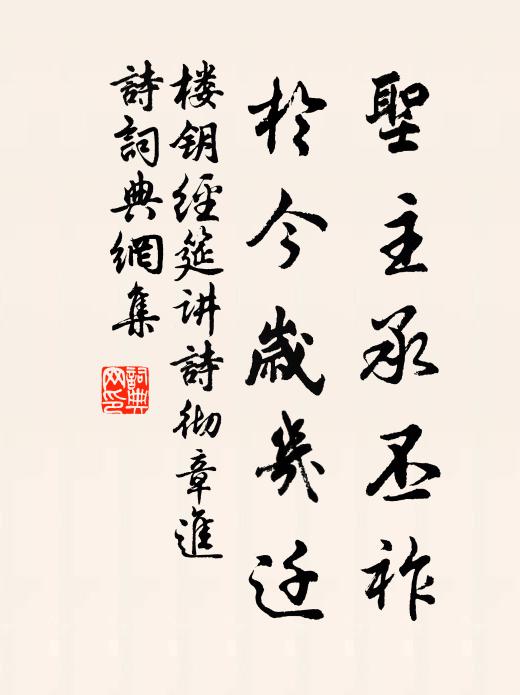 聖主承丕祚
於今歲幾迁
楼钥經筵讲詩彻章進
詩詞典網集
詞典網印